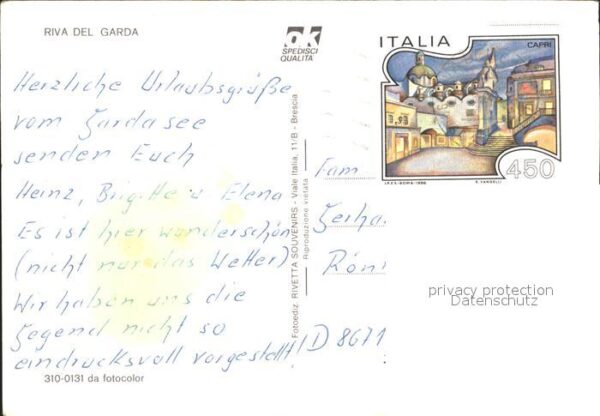 RIVA DEL GARDA
ok
SPEDISCI
QUALITÀ
Herzliche Urlaubsgrüße
vom Gardasee
senden Euch
Heinz, Brigitte u Elena
Es ist hier wunderschön
(nicht nur das Wetter)
Wir haben uns die
Gegend nicht so
eindrucksvoll vorgestellt!
310-0131 da fotocolor
Fotoediz. RIVETTA SOUVENIRS - Viale Italia, 11/B - Brescia
Riproduzione vietata
ITALIA
CAPRI
450
I.P.Z.S.-ROMA-1986
E. VANGELLI
Fam
Gerha
Rön
D 8671
privacy protection
Datenschutz